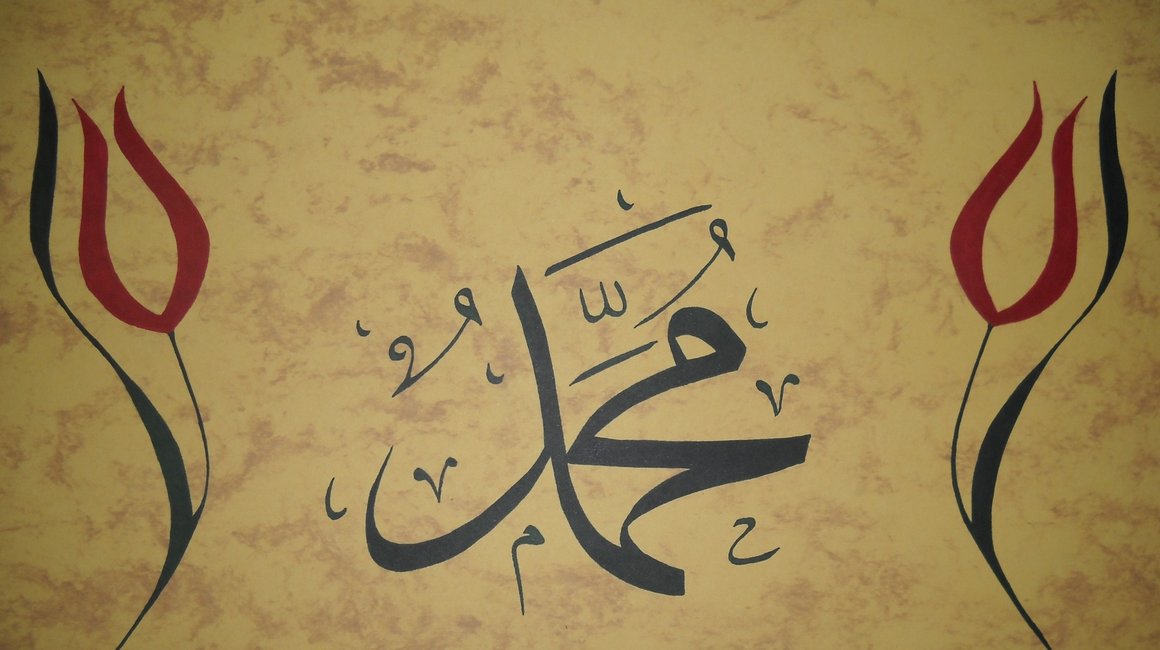 مُحَمَّدٌ